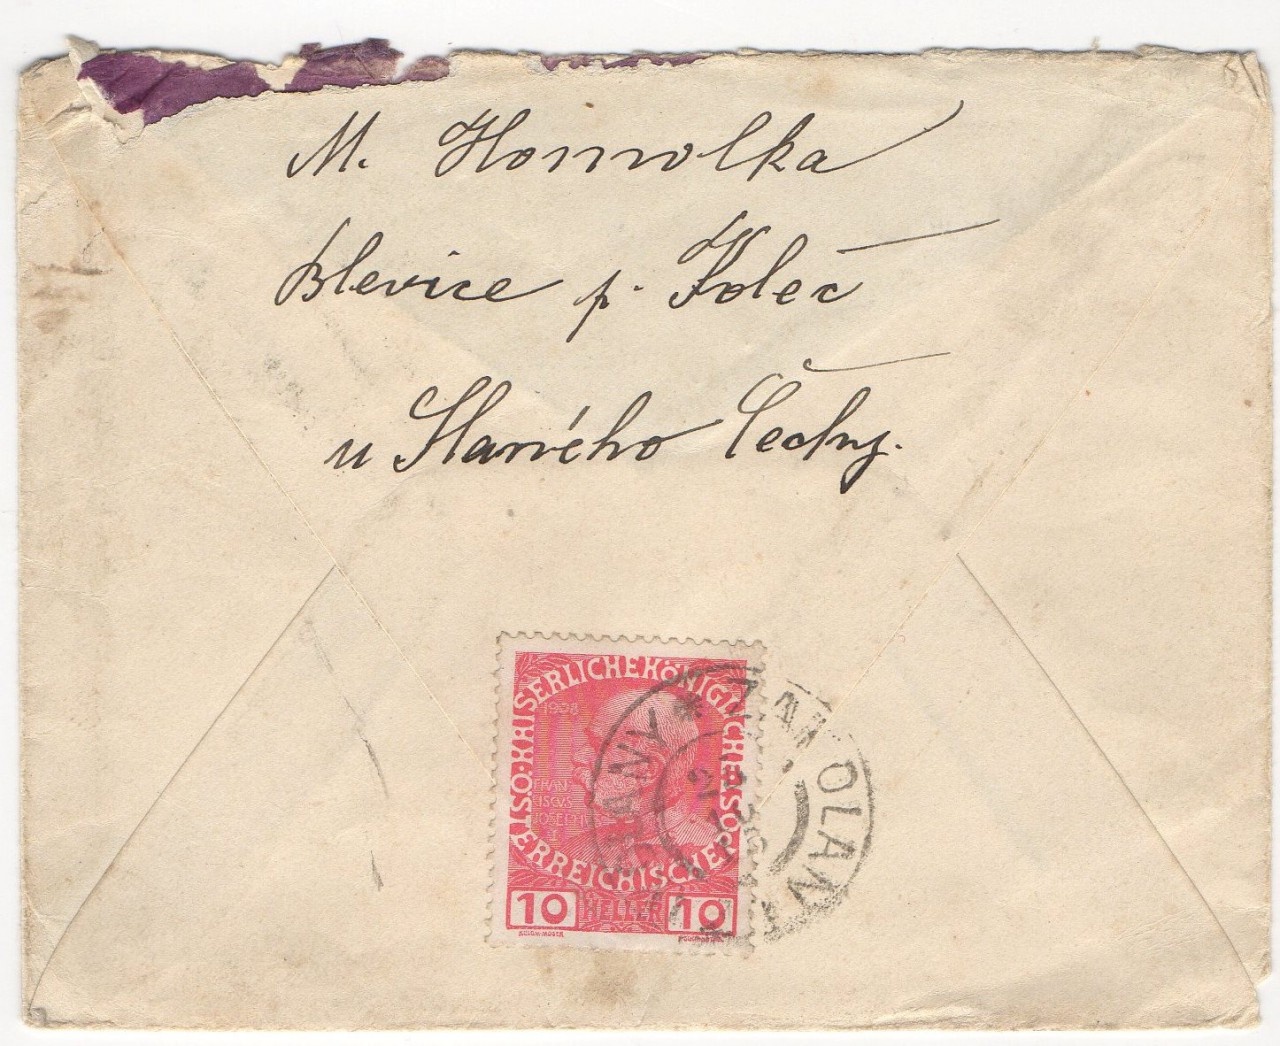 M. Homolka
Blevice p. Koleč
u Slaného Čechy.
KAISERLICHE KÖNIGLICHE ÖSTERREICHISCHE POST
1908
FRAN
CISCVS
JOSEPH
I
10 HELLER 10
KOLOM. MOSER